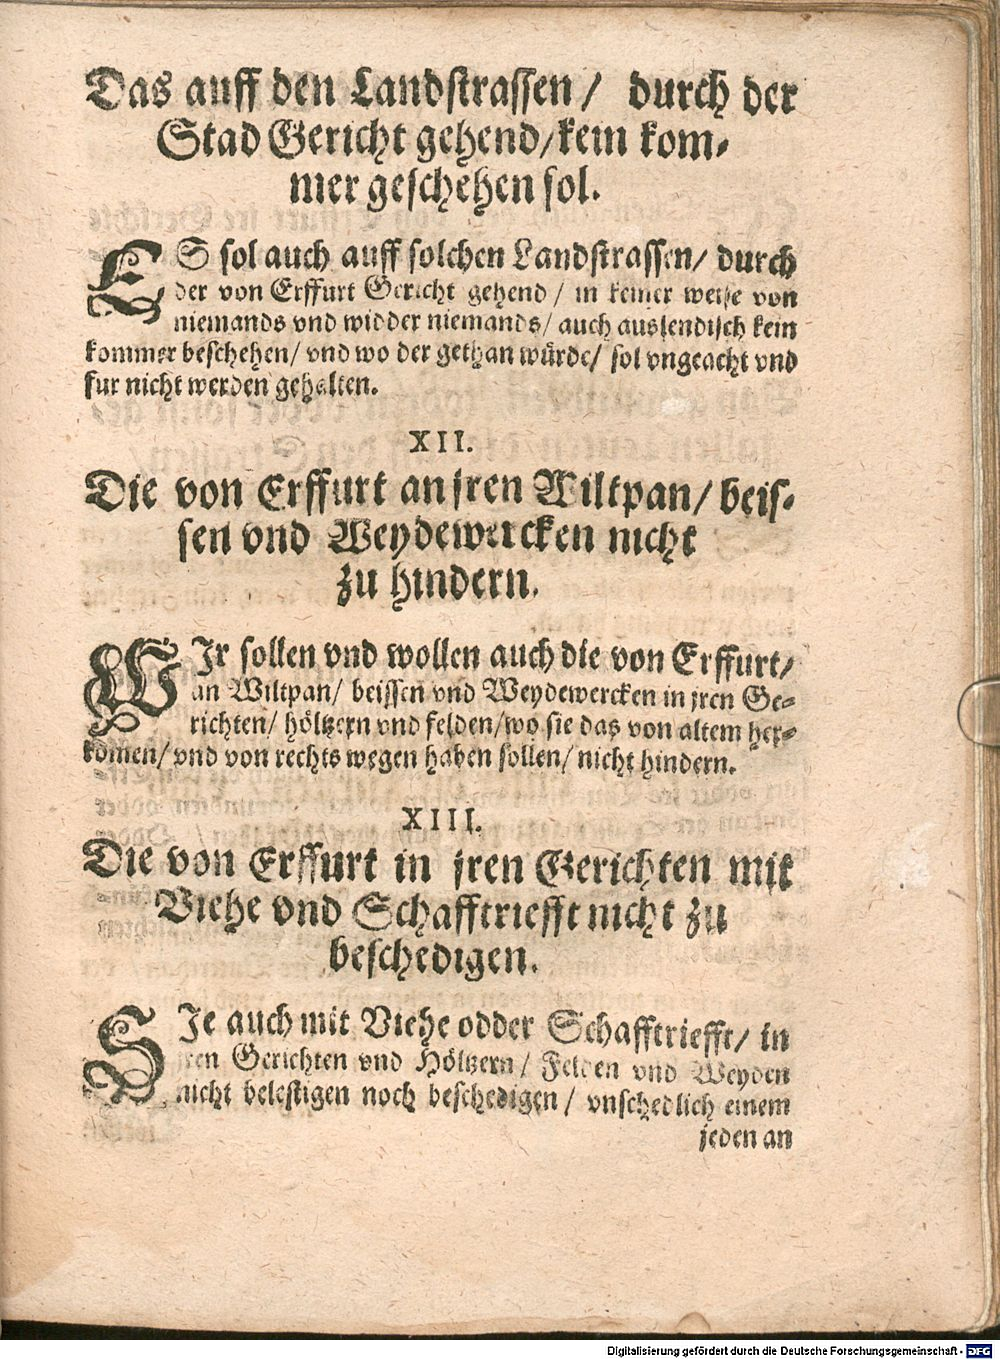 Das auff den Landstrassen / durch der
Stad Gericht gehend / kein kom-
mer geschehen sol.
ES sol auch auff solchen Landstrassen / durch
der von Erffurt Gericht gehend / in keiner weise von
niemands vnd widder niemands / auch auslendisch kein
kommer beschehen / vnd wo der gethan würde / sol vngeacht vnd
fur nicht werden gehalten.
XII.
Die von Erffurt an jren Wiltpan / beis-
sen vnd Weydewercken nicht
zu hindern.
WJr sollen vnd wollen auch die von Erffurt /
an Wiltpan / beissen vnd Weydewercken in jren Ge-
richten / höltzern vnd felden / wo sie das von altem her-
komen / vnd von rechts wegen haben sollen / nicht hindern.
XIII.
Die von Erffurt in jren Gerichten mit
Viehe vnd Schafftriefft nicht zu
beschedigen.
SJe auch mit Viehe odder Schafftriefft / in
jren Gerichten vnd Höltzern / Felden vnd Weyden
nicht belestigen noch beschedigen / vnschedlich einem
jeden an
Digitalisierung gefördert durch die Deutsche Forschungsgemeinschaft - DFG